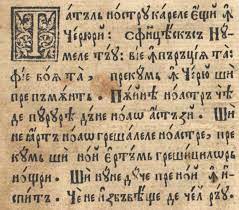 Татъль нострꙋ кареле Ещй ꙟ
Черюрй: Сфинцѣскъсъ Нꙋ
меле тъꙋ: віе ꙟпъръціѧ та
фіе воѧ та, прекꙋмь ꙟ Черю шй
пре пъмѫнть. Пѫинѣ ноастръ чѣ
де пꙋрꙋръ дъне ноаѡ астъꙁй. Шй
не ꙗртъ ноаѡ грешалеле ноастре, пре
кꙋмь шй ной Ертъмь грешицилѡрь
нощри. Шй нꙋне дꙋче пре ной ꙟ
испить. Че не иꙁбъвѣще де чел ръꙋ